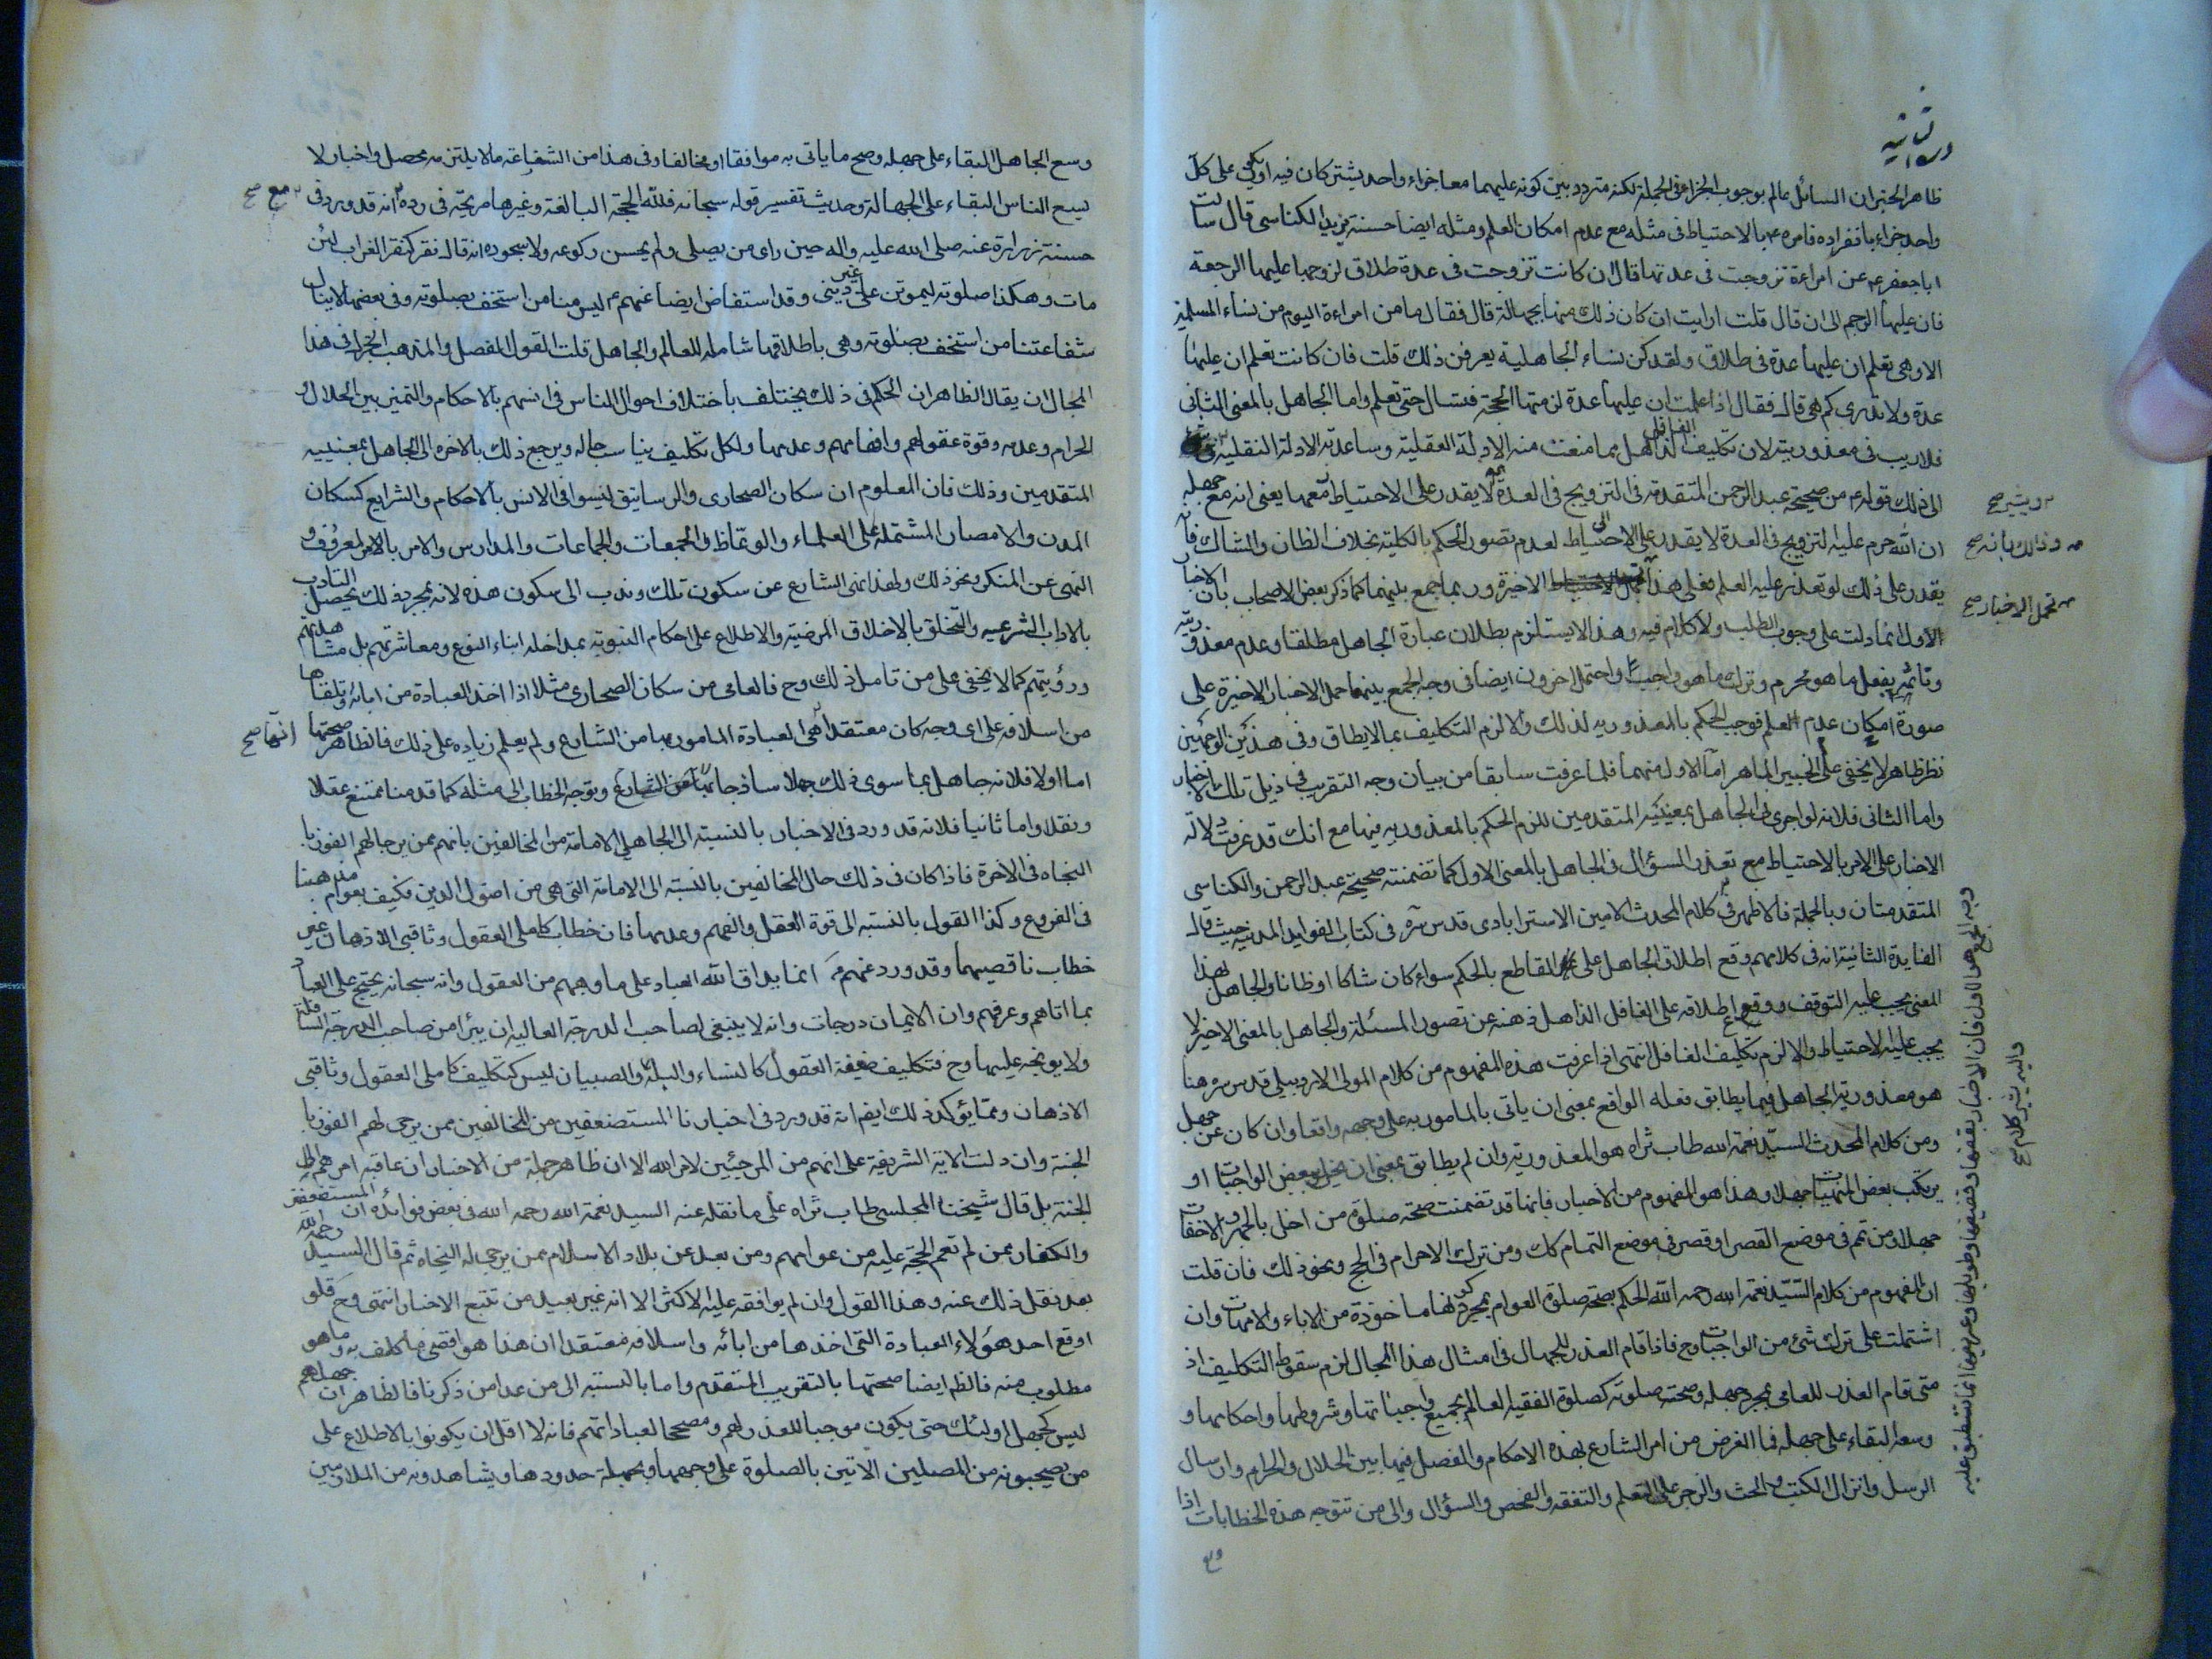 ظاهر الخبر ان السائل عالم بوجوب الجزاء فى الجملة لكنه متردد بين كونه عليهما معا جزاء واحد يشتركان فيه او على كل
واحد جزاء بانفراده فامره ع بالاحتياط فى مثله مع عدم امكان العلم ومثله ايضا حسنة يزيد الكناسى قال سالت
اباجعفر ع عن امراءة تزوجت فى عدتها قال ان كانت تزوجت فى عدة طلاق لزوجها عليها الرجعة
فان عليها الرجم الى ان قال قلت ارايت ان كان ذلك منها بجهالة قال فقال ما من امراءة اليوم من نساء المسلمين
الا وهى تعلم ان عليها عدة فى طلاق ولقد كن نساء الجاهلية يعرفن ذلك قلت فان كانت تعلم ان عليها
عدة ولا تدرى كم هى قال فقال اذا علمت ان عليها عدة لزمتها الحجة فتسال حتى تعلم واما الجاهل بالمعنى الثانى
فلا ريب فى معذوريته لان تكليف الغافل الذاهل مما منعت منه الادلة العقلية وساعدته الادلة النقلية
الى ذلك قوله ع من صحيحة عبد الرحمن المتقدمة فى التزويج فى العدة لا يقدر على الاحتياط معها يعنى انه مع جهله
ان الله حرم عليه التزويج فى العدة لا يقدر على الاحتياط لعدم تصور الحكم بالكلية بخلاف الظان والشاك فانه
يقدر على ذلك لو تعذر عليه العلم فعلى هذا تحمل الاخيرة وربما جمع بينهما كما ذكر بعض الاصحاب بان الاخبار
الاول انما دلت على وجوب الطلب ولا كلام فيه وهذا لا يستلزم بطلان عبادة الجاهل مطلقا وعدم معذوريته
وتاثمه بفعل ما هو محرم وترك ما هو واجب واحتمل اخرون ايضا فى وجه الجمع بينهما حمل الاخبار الاخيرة على
صورة امكان عدم العلم فوجب الحكم بالمعذورية لذلك والا لزم التكليف بما لا يطاق وفى هذين الوجهين
نظر ظاهر لا يخفى على الخبير الماهر اما الاول منهما فلما عرفت سابقا من بيان وجه التقريب فى ذيل تلك الاخبار
واما الثانى فلانه لو اجرى فى الجاهل بمعنييه المتقدمين للزم الحكم بالمعذورية فيها مع انك قد عرفت دلالة
الاخبار على الامر بالاحتياط مع تعذر السؤال فى الجاهل بالمعنى الاول كما تضمنته صحيحة عبد الرحمن والكناسى
المتقدمتان وبالجملة فالاظهر فى كلام المحدث الامين الاسترابادى قدس سره فى كتاب الفوايد المدنية حيث قال
الفايدة الثانية انه فى كلامهم وقع اطلاق الجاهل على غير القاطع بالحكم سواء كان شاكا او ظانا والجاهل بهذا
المعنى يجب عليه التوقف ووقع اطلاقه على الغافل الذاهل ذهنه عن تصور المسئلة والجاهل بالمعنى الاخير لا
يجب عليه الاحتياط والا لزم تكليف الغافل انتهى اذا عرفت هذه المفهوم من كلام المولى الاردبيلى قدس سره هنا
هو معذورية الجاهل فيما يطابق فعله الواقع بمعنى ان ياتى بالمامور به على وجهه واقعا وان كان عن جهل
ومن كلام المحدث السيد نعمة الله طاب ثراه هو المعذورية وان لم يطابق بمعنى ان يخل ببعض الواجبات او
يرتكب بعض المنهيات جهلا وهذا هو المفهوم من الاخبار فانها قد تضمنت صحة صلوة من اخل بالجهر والاخفات
جهلا ومن تم فى موضع القصر او قصر فى موضع التمام كك ومن ترك الاحرام فى الحج ونحو ذلك فان قلت
ان المفهوم من كلام السيد نعمة الله رحمه الله الحكم بصحة صلوة العوام بمجرد كونها ماخوذة من الاباء والامهات وان
اشتملت على ترك شئ من الواجبات وح فاذا قام العذر للجهال فى امثال هذا المجال لزم سقوط التكليف اذ
متى قام العذر للعامى بمجرد جهله وصحة صلوته كصلوة الفقيه العالم بجميع واجباتها وشروطها واحكامها و
وسعه البقاء على جهله فما الغرض من امر الشارع بهذه الاحكام والفصل فيها بين الحلال والحرام وارسال
الرسل وانزال الكتب والحث والزجر على التعلم والتفقه والفحص والسؤال والى من تتوجه هذه الخطابات اذا
ويشير صح
وذلك بانه صح
تحمل الاخبار صح
وجه الجمع هو الاول فان الاخبار
واليه يشير كلام
وسع
وسع الجاهل البقاء على جهله وصح ما ياتى به موافقا او مخالفا وفى هذا من الشناعة ما لا يلتزمه محصل واخبار لا
يسع الناس البقاء على الجهالة وحديث تفسير قوله سبحانه فلله الحجة البالغة وغيرها صريحة فى رده مع انه قد ورد فى
حسنة زرارة عنه صلى الله عليه واله حين راى من يصلى ولم يحسن ركوعه ولا سجوده انه قال نقر كنقر الغراب لئن
مات وهكذا صلوته ليموتن على غير دينى وقد استفاض ايضا عنهم ع ليس منا من استخف بصلوته وفى بعضها لا ينال
شفاعتنا من استخف بصلوته وهى باطلاقها شاملة للعالم والجاهل قلت القول الفصل والمذهب الجزل فى هذا
المجال ان يقال الظاهر ان الحكم فى ذلك يختلف باختلاف احوال الناس فى انسهم بالاحكام والتميز بين الحلال و
الحرام وعدمه وقوة عقولهم وافهامهم وعدمها ولكل تكليف يناسب حاله ويرجع ذلك بالاخرة الى الجاهل بمعنييه
المتقدمين وذلك فان المعلوم ان سكان الصحارى والرساتيق ليسوا فى الانس بالاحكام والشرايع كسكان
المدن والامصار المشتملة على العلماء والوعاظ والجمعات والجماعات والمدارس والامر بالامر المعروف و
النهى عن المنكر ونحو ذلك ولهذا نهى الشارع عن سكون تلك وندب الى سكون هذه لانه بمجرد ذلك يحصل التادب
بالاداب الشرعية والتخلق بالاخلاق المرضية والاطلاع على احكام النبوية بمداخلة ابناء النوع ومعاشرتهم بل مشاهدتهم
ورؤيتهم كما لا يخفى على من تامل ذلك وح فالعامى من سكان الصحارى مثلا اذا اخذ العبادة من ابائه وتلقاها
من اسلافه على اى وجه كان معتقدا انها هى العبادة المامور بها من الشارع ولم يعلم زيادة على ذلك فالظاهر صحتها
اما اولا فلانه جاهل بما سوى ذلك جهلا ساذجا وتوجه الخطاب الى مثله كما قدمنا ممتنع عقلا
ونقلا واما ثانيا فلانه قد ورد فى الاخبار بالنسبة الى الجاهل الامامة من المخالفين بانهم ممن يرجا لهم الفوز با
النجاه فى الاخرة فاذا كان فى ذلك حال المخالفين بالنسبة الى الامامة التى هى من اصول الدين فكيف بعوام مذهبنا
فى الفروع وكذا القول بالنسبة الى قوة العقل والفهم وعدمها فان خطاب كاملى العقول وثاقبى الاذهان غير
خطاب ناقصيهما وقد ورد عنهم ع انما يداق الله العباد على ما وهبهم من العقول وانه سبحانه يحتج على العباد
بما اتاهم وعرفهم وان الايمان درجات وانه لا ينبغى لصاحب الدرجة العالية ان يبرا من صاحب الدرجة السافلة
ولا يوبخه عليها وح فتكليف ضعيفة العقول كالنساء والبله والصبيان ليس كتكليف كاملى العقول وثاقبى
الاذهان ومما يؤكد ذلك ايض انه قد ورد فى اخبارنا المستضعفين من المخالفين ممن يرجى لهم الفوز با
الجنة وان دلت الاية الشريفة على انهم من المرجئين لامر الله الا ان ظاهر جملة من الاخبار ان عاقبة امرهم الى
الجنة بل قال شيخنا المجلسى طاب ثراه على ما نقله عنه السيد نعمة الله رحمه الله فى بعض فوائده ان المستضعفين
والكفار ممن لم تقم الحجة عليه من عوامهم ومن بعد عن بلاد الاسلام ممن يرجى له النجاه ثم قال السيد رحمه الله
بعد نقل ذلك عنه وهذا القول وان لم يوافقه عليه الاكثر الا انه غير بعيد من تتبع الاخبار انتهى وح فلو
اوقع احد هؤلاء العبادة التى اخذها من ابائه واسلافه معتقدا ان هذا هو اقصى ما كلف به وما هو
مطلوب منه فالظ ايضا صحتها بالتقريب المتقدم واما بالنسبة الى من عدا من ذكرنا فالظاهر ان جهلهم
ليس كجهل اولئك حتى يكون موجبا للعذر لهم ومصححا لعباداتهم فانه لا اقل ان يكونوا بالاطلاع على
من يصحبونه من المصلين الاتين بالصلوة على وجهها وبجملة حدودها ويشاهدونه من الملازمين
مع صح
انها صح